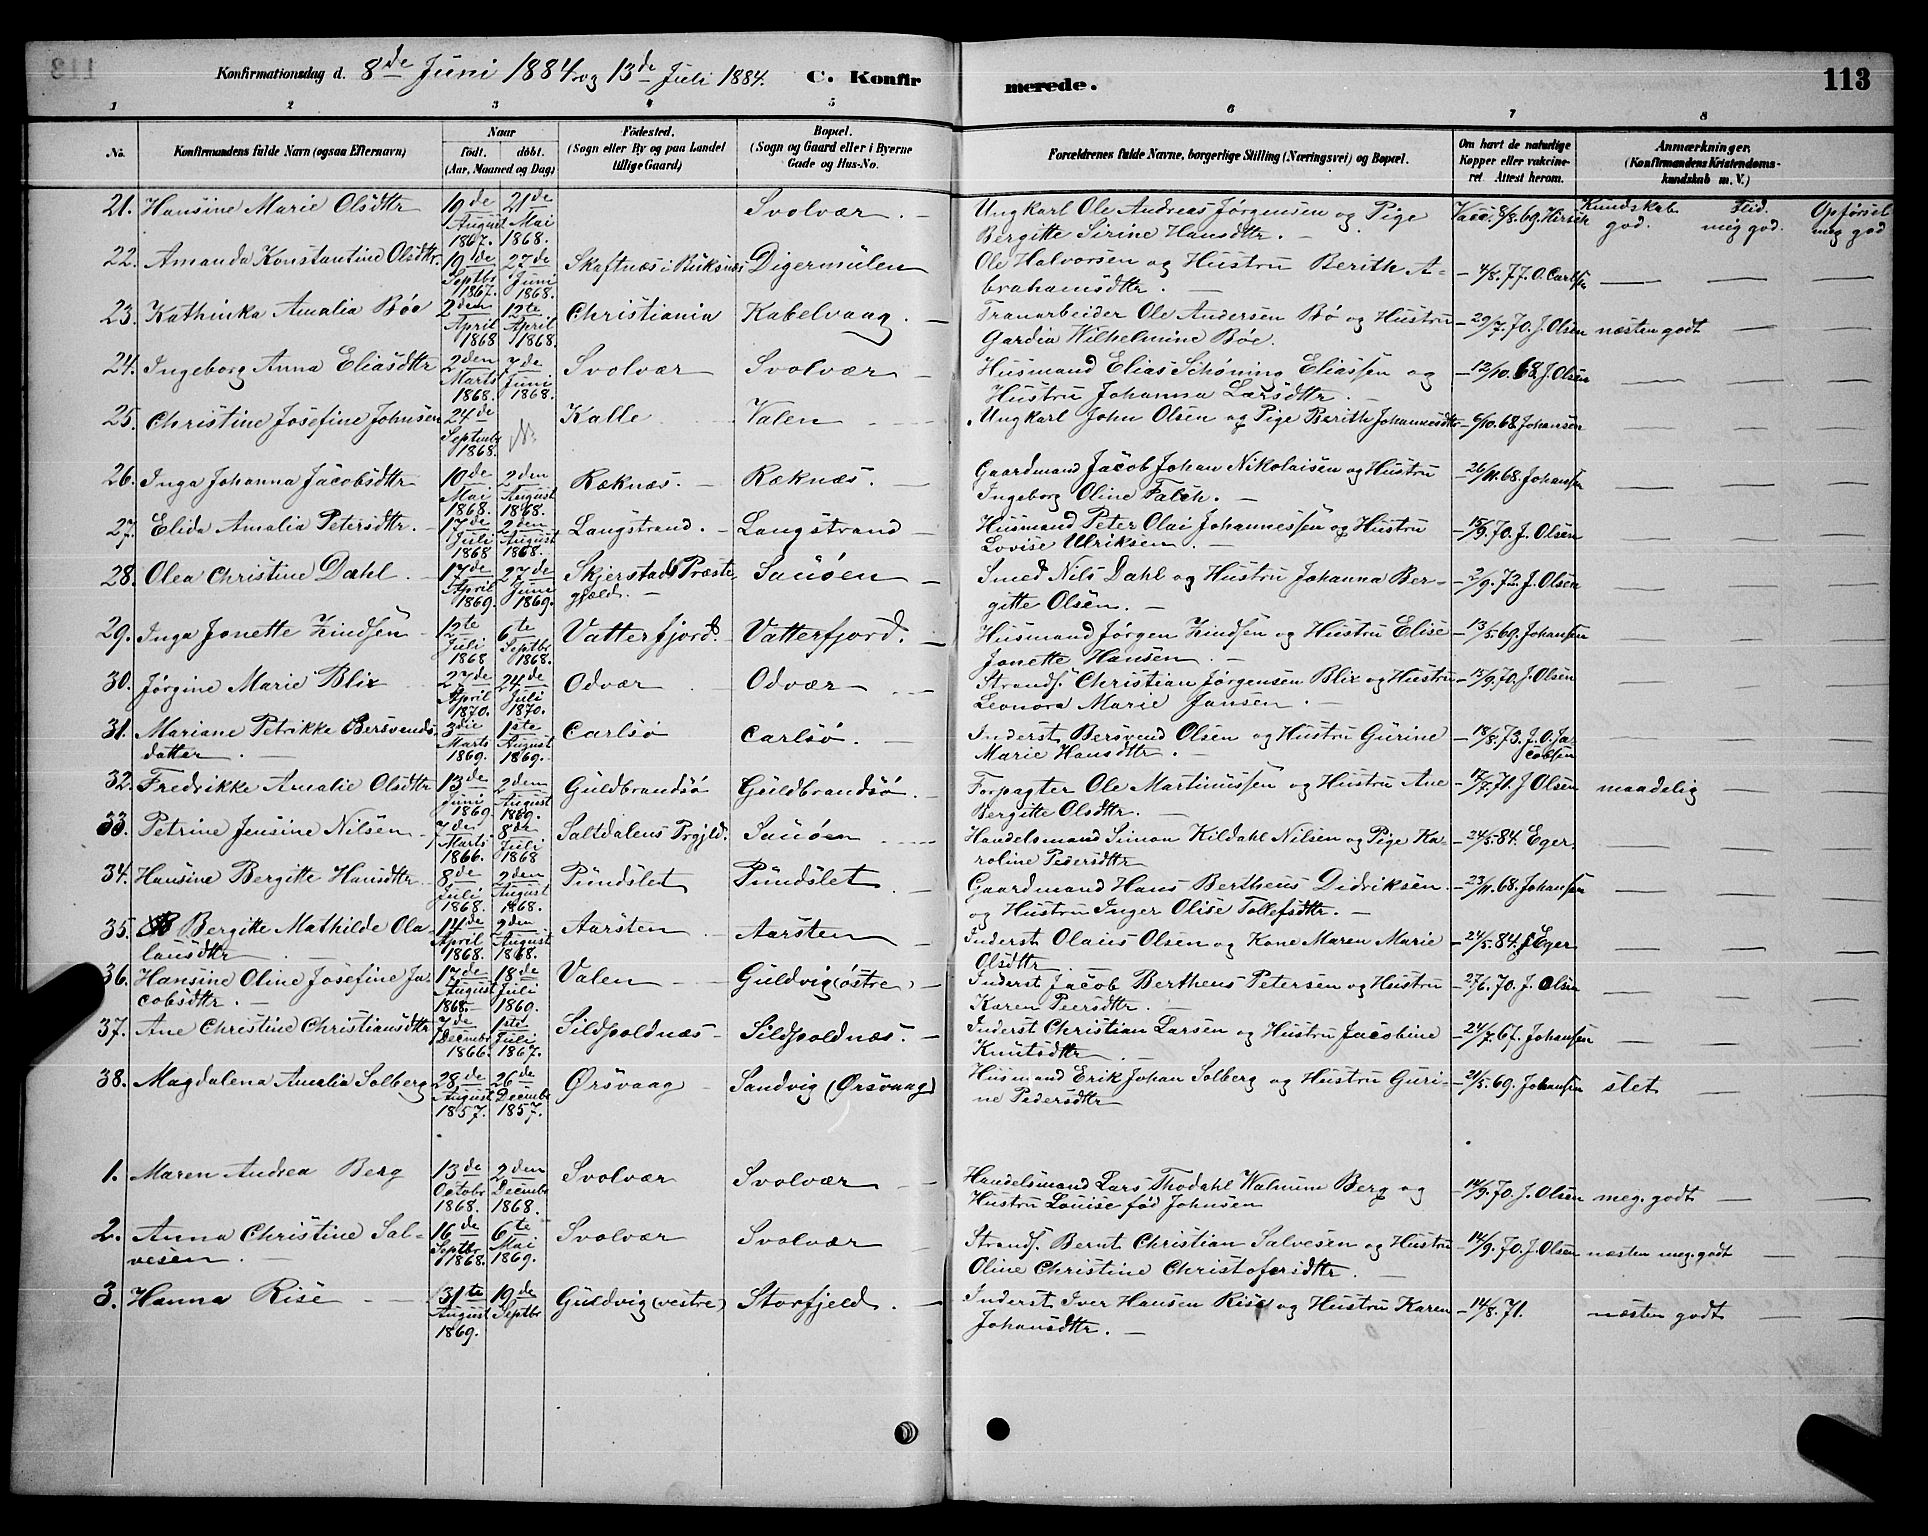 Konfirmationsdag d. 8de Juni 1884 og 13de Juli 1884. C. Konfirmerede. 113
1 2 3 4 5 6 7 8
No. Konfirmandens fulde Navn (ogsaa Efternavn) Naar født. døbt. (Aar, Maaned og Dag) Fødested. (Sogn eller By og paa Landet tillige Gaard) Bopæl. (Sogn og Gaard eller i Byerne Gade og Hus-No. Forældrenes fulde Navne, borgerlige Stilling (Næringsvei) og Bopæl. Om havt de naturlige Kopper eller vakcineret. Attest herom. Anmærkninger. (Konfirmandens Kristendomskundskab m. V.)
Kundskab Flid. Opførsel
21. Hansine Marie Olsdttr 19de August 1867. 21de Mai 1868. Svolvær. Ungkarl Ole Andreas Jørgensen og Pige
Bergitte Sirine Hansdttr. Vacc. 8/8.69. Hirsch god. meg god. meg god
22. Amanda Konstantine Olsdttr. 19de Septbr 1867. 27de Juni 1868. Skaftnæs i Buksnæs Digermulen Ole Halvorsen og Hustru Berith A-
brahamsdttr. 4/8.77. O. Carlsen
23. Kathinka Amalia Bøe 2den April 1868 12te April 1868. Christiania Kabelvaag. Tranarbeider Ole Andersen Bø og Hustru
Gardia Wilhelmine Bøe. 29/7.70. J. Olsen næsten godt
24. Ingeborg Anna Eliasdttr 2den Marts 1868. 7de Juni 1868. Svolvær Svolvær Husmand Elias Schøning Eliassen og
Hustru Johanna Larsdttr. 12/10.68 J. Olsen
25. Christine Josefine Johnsen 24de Septmbr 1868. Kalle Valen Ungkarl John Olsen og Pige Berith Johannesdttr 6/10.68 Johansen
26. Inga Johanna Jacobsdttr 10de Mai 1868. 2den August 1868. Ræknæs. Ræknæs. Gaardmand Jacob Johan Nikolaisen og Hustru
Ingeborg Oline Falch. 26/11.68. Johansen
27. Elida Amalia Petersdttr. 17de Juli 1868 2den August 1868. Langstrand. Langstrand Husmand Peter Olai Johannessen og Hustru
Lovise Ulriksen. 15/9.70. J. Olsen
28. Olea Christine Dahl. 17de April 1869. 27de Juni 1869. Skjerstads Præste
gjæld. Sauøen Smed Nils Dahl og Hustru Johanna Ber-
gitte Olsen. 2/9.72. J. Olsen
29. Inga Jonette Zindsen 12te Juli 1868 6te Septbr 1868. Vatterfjord. Vatterfjord. Husmand Jørgen Zindsen og Hustru Elise
Jonette Hansen. 13/5.69. Johansen
30. Jørgine Marie Blix 27de April 1870. 24de Juli 1870. Odvær Odvær Strands. Christian Jørgensen Blix og Hustru
Leonora Marie Jansen. 15/9.70. J. Olsen
31. Mariane Petrikke Bersvends-
datter. 3die Marts 1869. 1ste August 1869. Carlsø Carlsø. Inderst Bersvend Olsen og Hustru Gurine
Marie Hansdttr. 18/8.73. J. O. Ja-
cobsen
32. Fredrikke Amalie Olsdttr 13de Juni 1869. 2den August 1869. Guldbrandsø Guldbrandsø. Forpagter Ole Martinussen og Hustru Ane
Bergitte Olsdttr. 17/7.71. J Olsen maadelig
33. Petrine Jensine Nilsen 7de Marts 1866. 8de Juli 1868 Saltdalens Prgjld. Sauøen Handelsmand Simon Kildahl Nilsen og Pige Ka-
roline Pedersdttr 24/5.84. Eger.
34. Hansine Bergitte Hansdttr. 8de Juli 1868. 2den August 1868. Pundslet Pundslet Gaardmand Hans Bertheus Didriksen
og Hustru Inger Olise Tollefsdttr. 23/11.68. Johansen
35. Bergitte Mathilde Ola-
lausdttr 14de April 1868. 2den August 1868. Aarsten Aarsten Inderst Olaus Olsen og Kone Maren Marie
Olsdttr 24/5.84. Eger
36. Hansine Oline Josefine Ja-
cobsdttr. 17de August 1868. 18de Juli 1869. Valen Guldvig (østre) Inderst Jacob Bertheus Petersen og Hustru
Karen Peersdttr. 27/6.70. J. Olsen
37. Ane Christine Christiansdttr 7de Decmbr 1866. 1ste Juli 1867. Sildpoldnæs Sildpoldnæs. Inderst Christian Larsen og Hustru Jacobine
Knutsdttr 24/7.67. Johansen
38. Magdalena Amalia Solberg 28de August 1857. 26de Decmbr 1857. Ørsvaag Sandvig (Ørsvaag) Husmand Erik Johan Solberg og Hustru Guri-
ne Pedersdttr 21/5.69. Johansen slet
1. Maren Andrea Berg 13de Octobr 1868. 2den Decmbr 1868. Svolvær Svolvær Handelsmand Lars Thodahl Walnum Berg og
Hustru Louise fød Johnsen 14/9.70. J. Olsen meg. godt
2. Anna Christine Sal-
vesen. 16de Septbr 1868. 6te Mai 1869. Svolvær Svolvær Strands. Bernt Christian Salvesen og Hustru
Oline Christine Christofersdttr. 14/9.70. J. Olsen næsten meg. godt
3. Hanna Rise 31te August 1869. 19de Septbr Guldvig (vestre) Storfjeld. Inderst Iver Hansen Rise og Hustru Karen
Johansdttr. 14/8.71. næsten godt